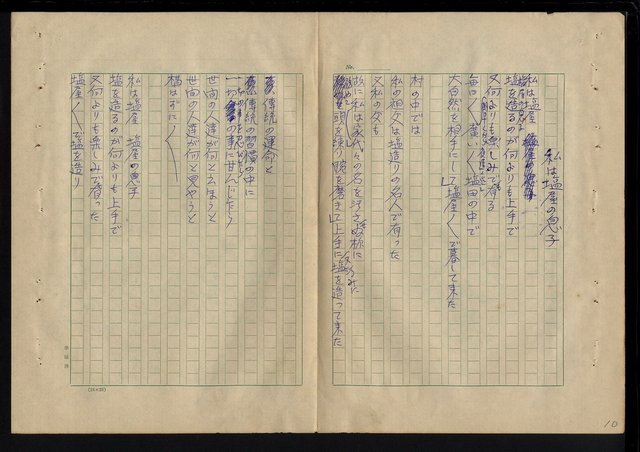 私は塩屋の息子
私は塩屋
塩を造るのが何よりも上手で
又何よりも楽しみで有る
毎日く暑いく塩田の中で
大自然を相手にして塩屋くで暮して来た
村の中では
私の祖父は塩造りの名人で有った
又私の父も
故に私は永代々の名を汚さぬ様に
頭を練り腕を磨きて上手に塩を造って来た
伝統の運命と
伝統の習慣の中に
一切の事に甘んじたら
世間の人達が何と云まうと
世間の人達が何と見やうと
構はずに
私は塩屋 塩屋の息子
塩を造るのが何よりも上手で
又何よりも楽しみで有った
塩屋くで塩を造り
No.
10